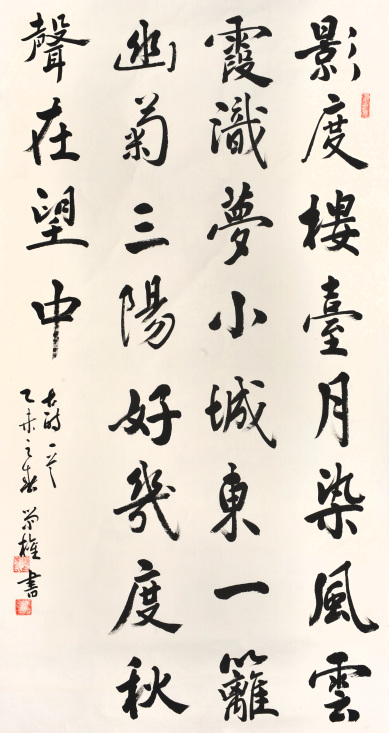 影度樓臺月染風雲
霞識夢小城東一籬
幽菊三陽好幾度秋
聲在望中
古詩一首
乙未之春 榮權書